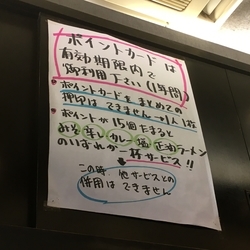 ポイントカードは
有効期限内で
御利用下さい(1年間)
ポイントカードをまとめての
押印はできません→1人1枚
ポイントが15個たまると
みそ 辛い カレー 塩 正油ラーメン
のいずれが一杯サービス!!
この時 他サービスとの
併用はできません